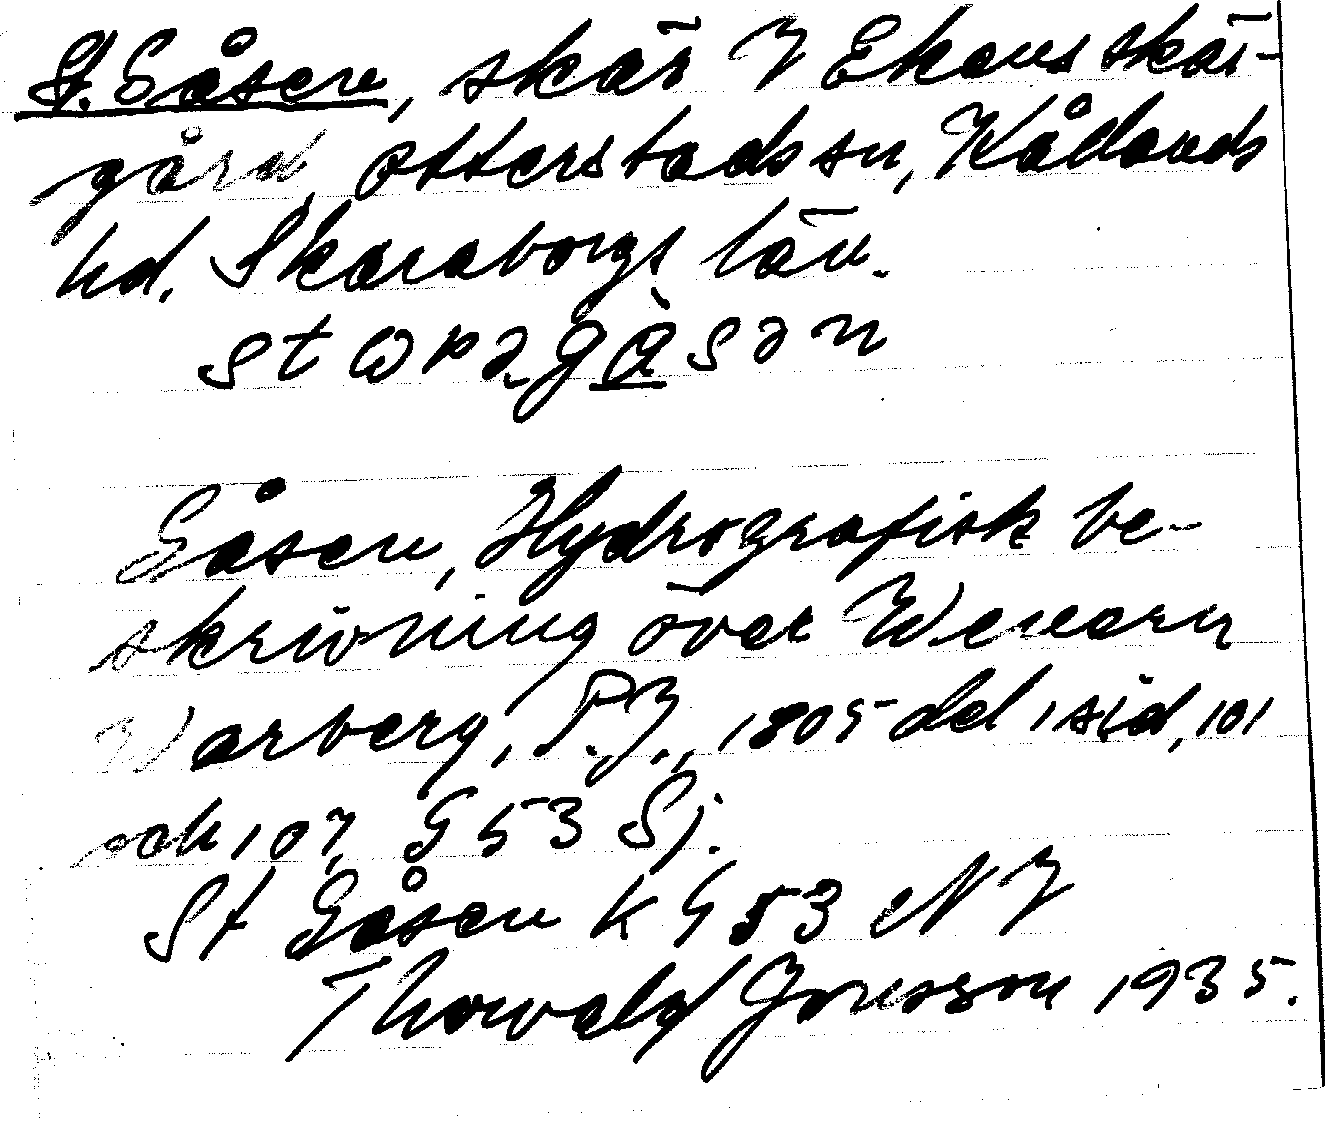 St. Gåsen, skär I Ekens skär-
gård, Otterstads sn, Kållands
hd. Skaraborgs län.
Gåsen, Hydrografisk be-
skrivning över Wenern
Warberg, P.J., 1805 del 1 sid, 101
och 107, G 53 Sj.
St Gåsen K G 53 N J
Thorvald Jonsson 1935.